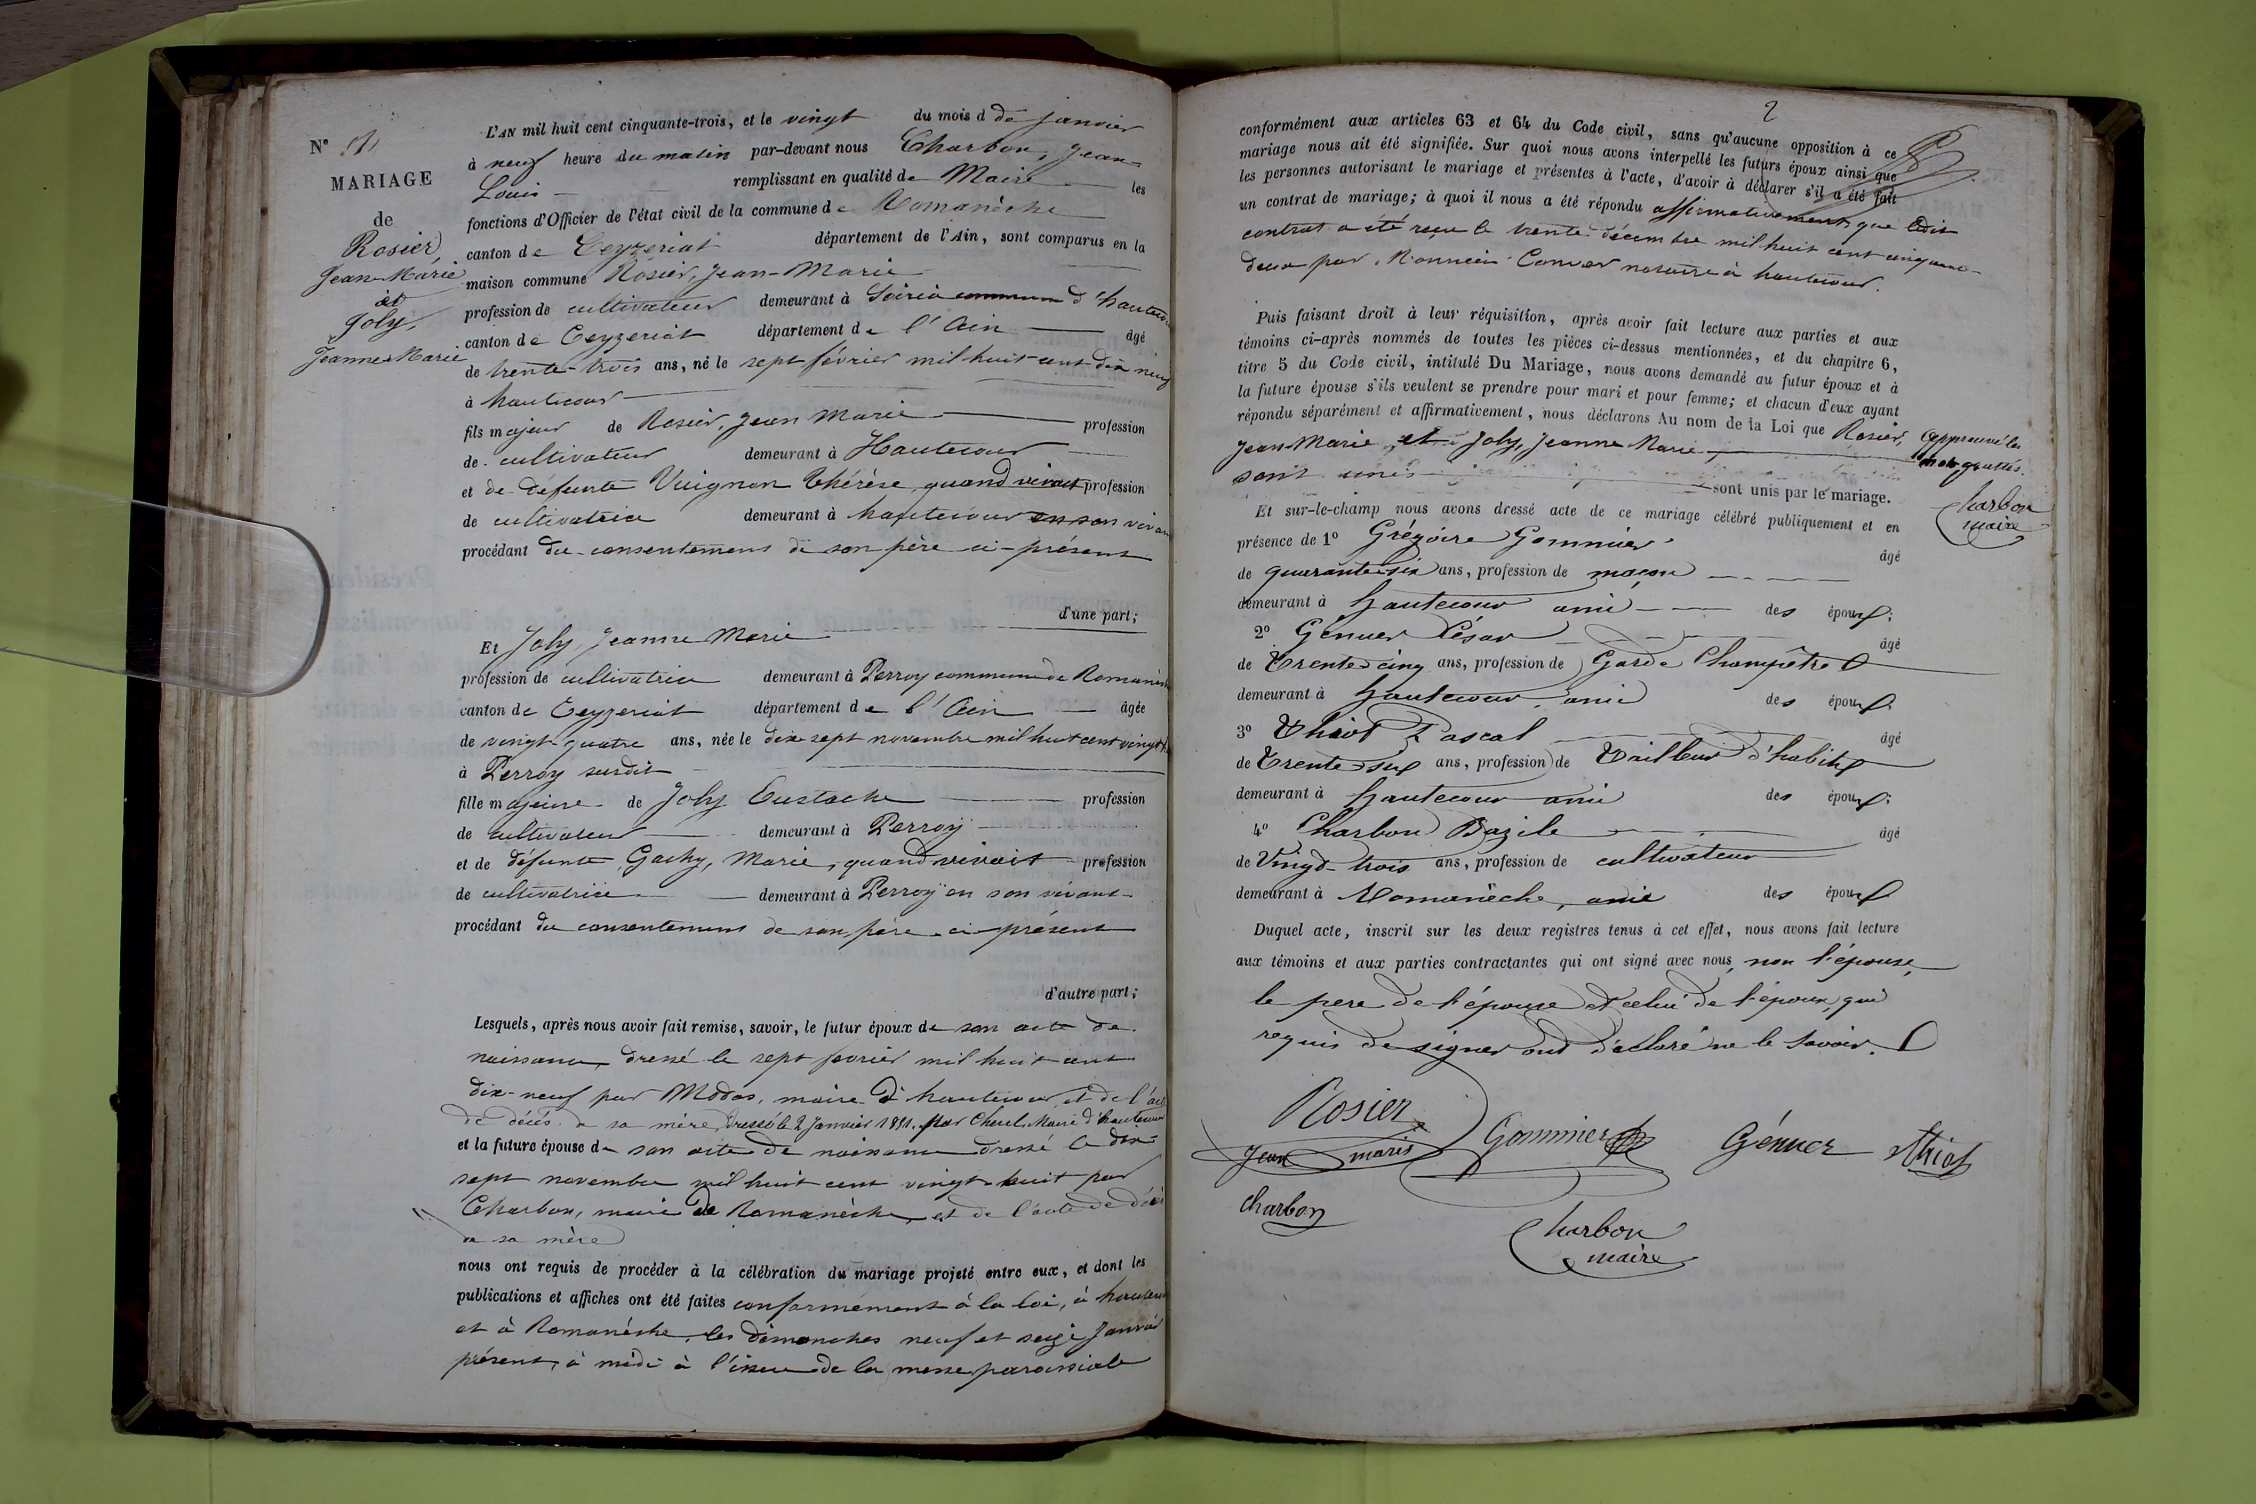 L'AN mil huit cent cinquante-trois, et le vingt du mois d de janvier
N°
à neuf heure du matin par-devant nous Charbon, Jean-
MARIAGE
Louis remplissant en qualité de Maire les
de
fonctions d'Officier de l'état civil de la commune de Romanèche
Rosier,
canton de Ceyzeriat département de l'Ain, sont comparus en la
Jean-Marie
maison commune Rosier, Jean-Marie
et
profession de cultivateur demeurant à commune d'hautecour
Joly,
canton de Ceyzeriat département de l'Ain âgé
Jeanne Marie
de trente-trois ans, né le sept février mil huit cent dix neuf
à hautecour
fils majeur de Rosier, Jean Marie profession
de cultivateur demeurant à Hautecour
et de défunte Vuignon Thérèse, quand vivait profession
de cultivatrice demeurant à hautecour en son vivant
procédant du consentement de son père ci-présent
d'une part;
Et Joly, Jeanne Marie
profession de cultivatrice demeurant à Perroy commune de Romanèche
canton de Ceyzeriat département de l'Ain âgée
de vingt-quatre ans, née le dix sept novembre mil huit cent vingt huit
à Perroy susdit
fille majeure de Joly Eustache profession
de cultivateur demeurant à Perroy
et de défunte Gachy, Marie, quand vivait profession
de cultivatrice demeurant à Perroy en son vivant
procédant du consentement de son père ci-présent
d'autre part;
Lesquels, après nous avoir fait remise, savoir, le futur époux de son acte de
naissance, dressé le sept février mil huit cent
dix-neuf par Modas, maire d'hautecour et de l'acte
de décès de sa mère, dressé le 2 Janvier 1851, par Chevel, Maire d'hautecour
et la future épouse de son acte de naissance dressé le dix-
sept novembre mil huit cent vingt huit par
Charbon, maire de Romanèche, et de l'acte de décès
de sa mère
nous ont requis de procéder à la célébration du mariage projeté entre eux, et dont les
publications et affiches ont été faites conformément à la loi, à hautecour
et à Romanèche, les dimanches neuf et seize Janvier
présent, à midi à l'issue de la messe paroissiale
2
conformément aux articles 63 et 64 du Code civil, sans qu'aucune opposition à ce
mariage nous ait été signifiée. Sur quoi nous avons interpellé les futurs époux ainsi que
les personnes autorisant le mariage et présentes à l'acte, d'avoir à déclarer s'il a été fait
un contrat de mariage; à quoi il nous a été répondu affirmativement, que ledit
contrat a été reçu le trente décembre mil huit cent cinquante-
deux par Monnier Convar notaire à hautecour.
Puis faisant droit à leur réquisition, après avoir fait lecture aux parties et aux
témoins ci-après nommés de toutes les pièces ci-dessus mentionnées, et du chapitre 6,
titre 5 du Code civil, intitulé Du Mariage, nous avons demandé au futur époux et à
la future épouse s'ils veulent se prendre pour mari et pour femme; et chacun d'eux ayant
répondu séparément et affirmativement, nous déclarons Au nom de la Loi que Rosier,
Jean-Marie et Joly, Jeanne Marie,
sont unis sont unis par le mariage.
Approuvé les
mots grattés.
Charbon
maire
Et sur-le-champ nous avons dressé acte de ce mariage célébré publiquement et en
présence de 1° Grégoire Gommier âgé
de quarante-six ans, profession de maçon
demeurant à hautecour ami des époux;
2° Génuer César âgé
de Trente cinq ans, profession de Garde Champêtre
demeurant à hautecour, ami des époux
3° Thiot Pascal âgé
de Trente six ans, profession de Tailleur d'habits
demeurant à hautecour ami des époux;
4° Charbon Bazile âgé
de Vingt-trois ans, profession de cultivateur
demeurant à Romanèche, ami des époux
Duquel acte, inscrit sur les deux registres tenus à cet effet, nous avons fait lecture
aux témoins et aux parties contractantes qui ont signé avec nous, non l'épouse,
le pere de l'épouse et celui de l'époux, qui
requis de signer ont déclaré ne le savoir.
Rosier
Jean maris
Gommier
Génuer
Thiot
Charbon
Charbon
maire